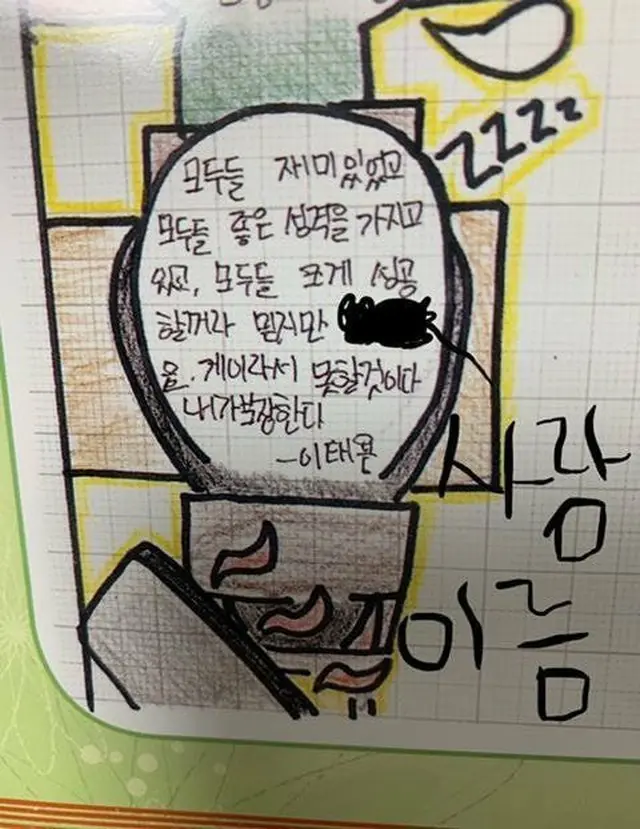 ZZZZ
모두들 재미있었고
모두들 좋은 성격을 가지고
있고, 모두들 크게 성공
할꺼라 믿지만
음. 게이라서 못할것이다
내가 보장한다
-이태
사람
이름